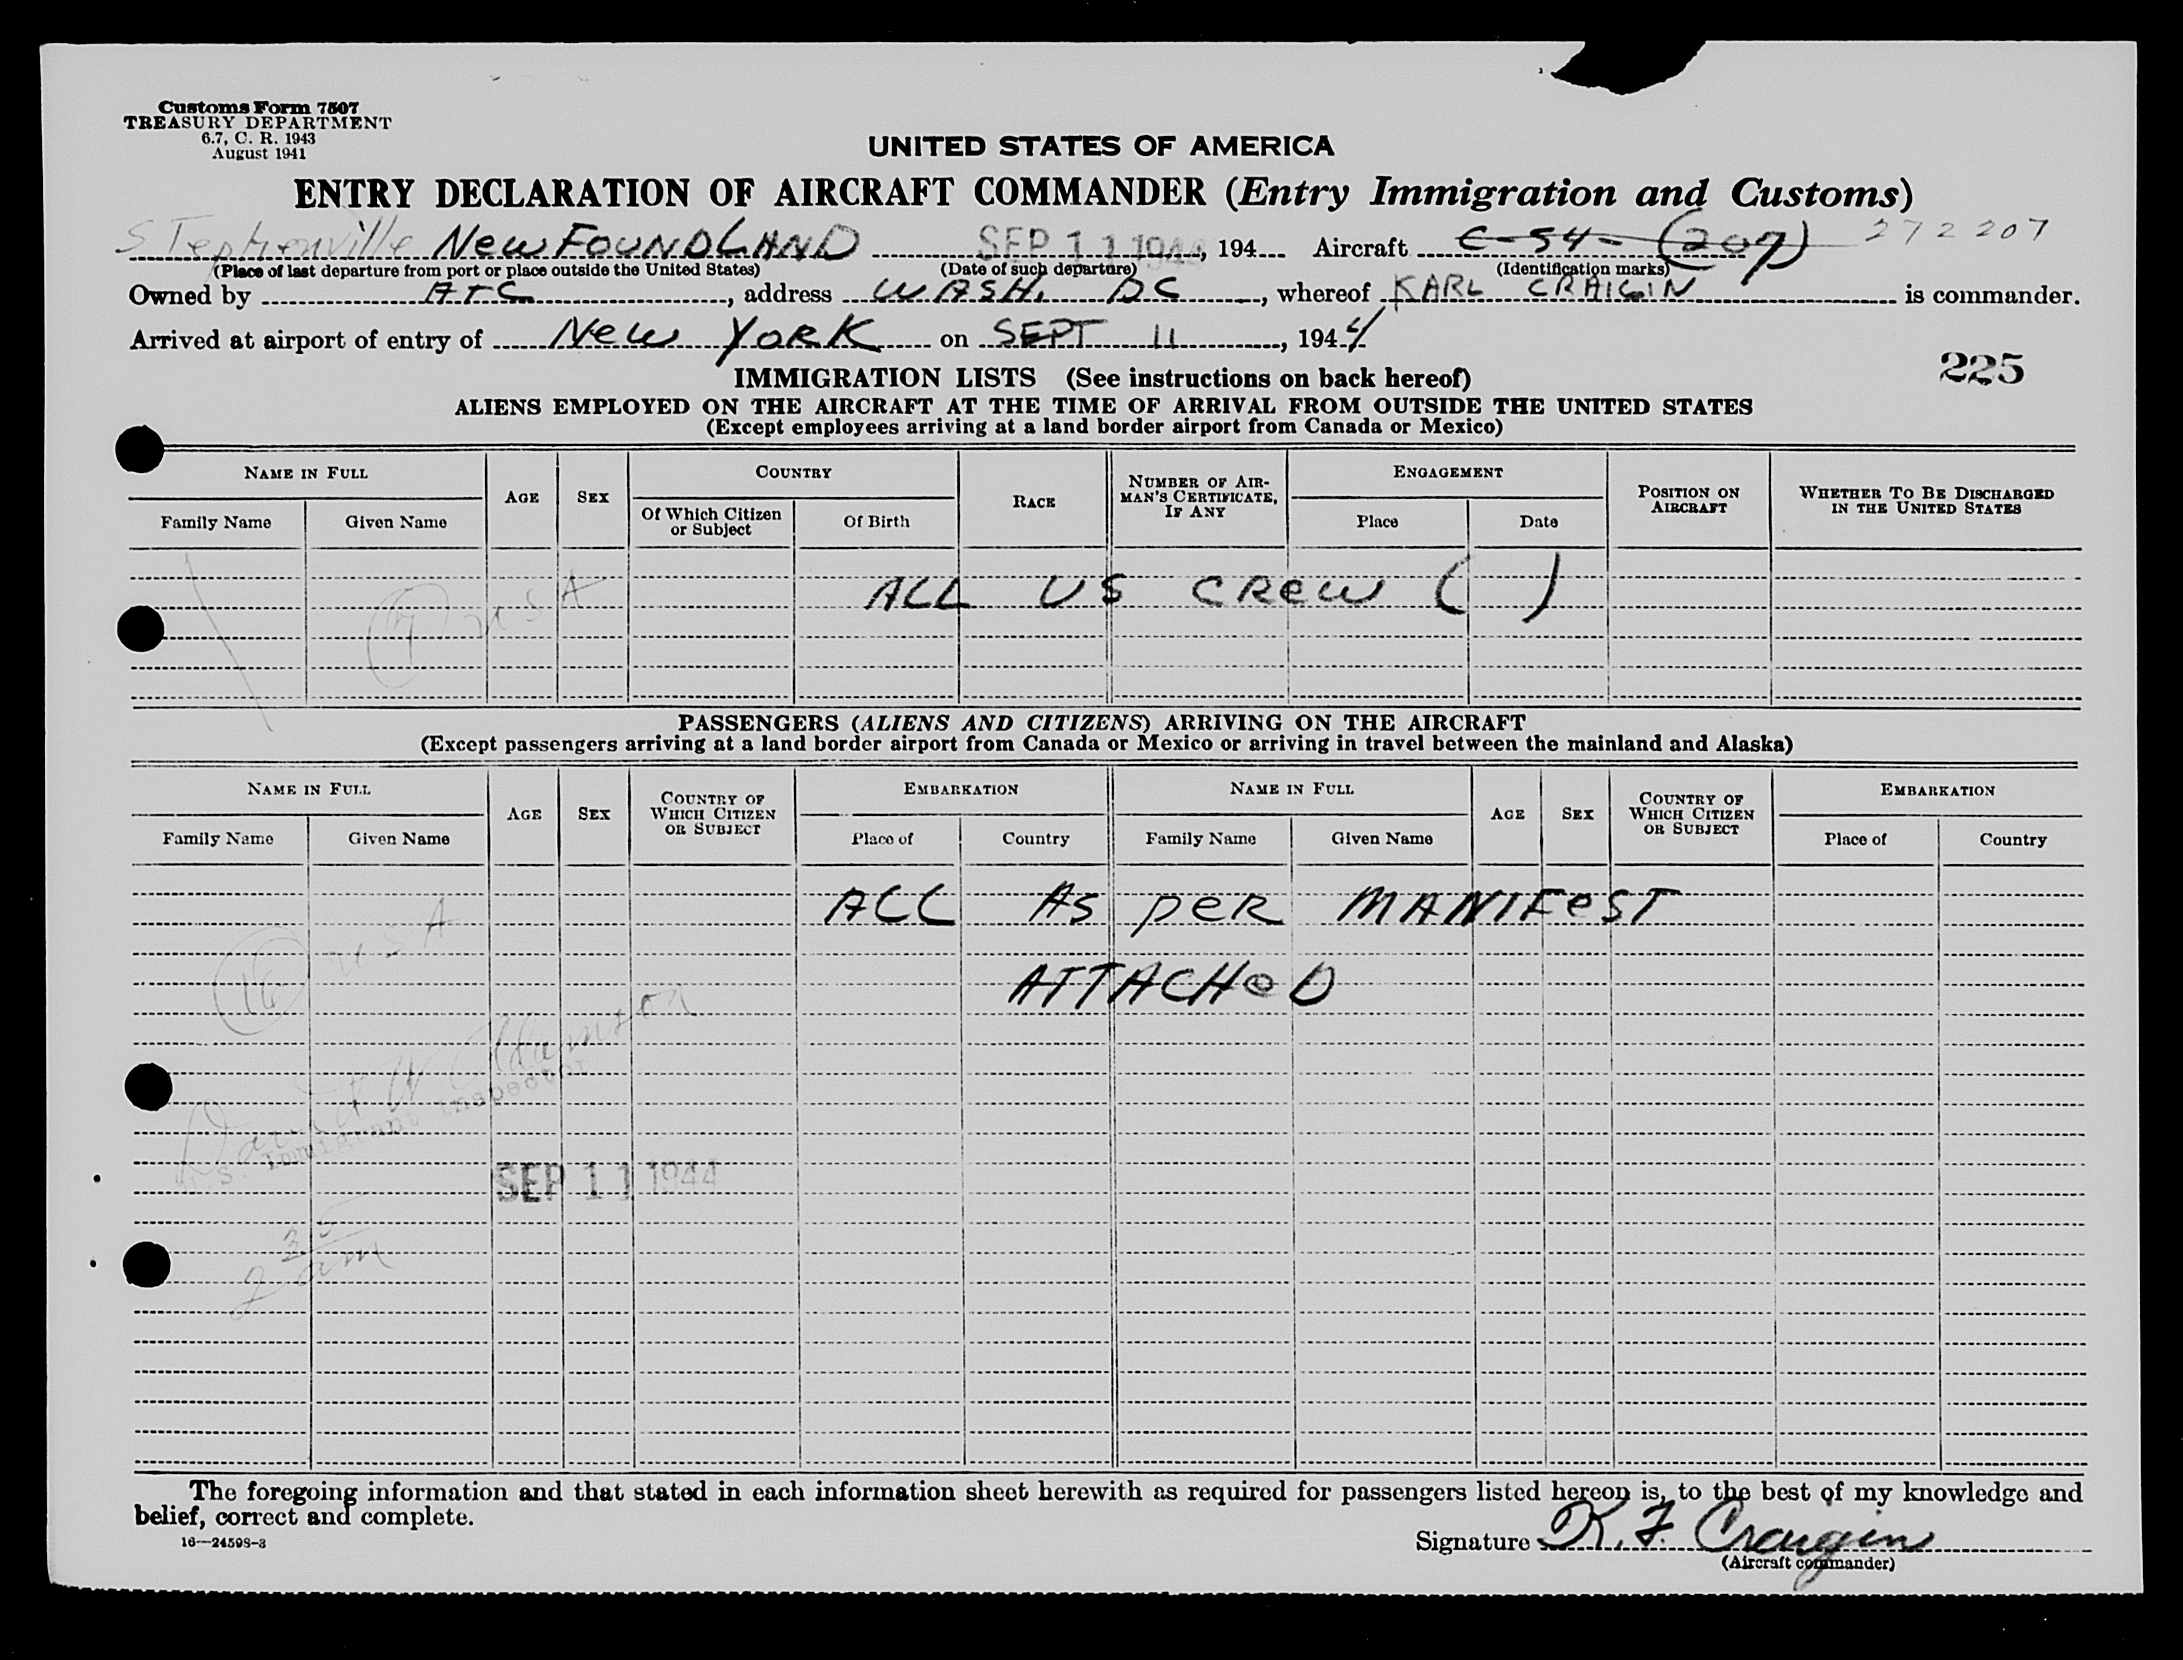 Customs Form 7507
TREASURY DEPARTMENT
6.7, C. R. 1943
August 1941
UNITED STATES OF AMERICA
ENTRY DECLARATION OF AIRCRAFT COMMANDER (Entry Immigration and Customs)
Stephenville NewFOUNDLAND SEP 11 1944, 194 Aircraft C-54-(207) 272207
(Place of last departure from port or place outside the United States) (Date of such departure) (Identification marks)
Owned by ATC, address WASH. DC, whereof KARL CRAIGIN is commander.
Arrived at airport of entry of New YORK on SEPT 11, 1944
225
IMMIGRATION LISTS (See instructions on back hereof)
ALIENS EMPLOYED ON THE AIRCRAFT AT THE TIME OF ARRIVAL FROM OUTSIDE THE UNITED STATES
(Except employees arriving at a land border airport from Canada or Mexico)
NAME IN FULL AGE SEX COUNTRY RACE NUMBER OF AIRMAN'S CERTIFICATE, IF ANY ENGAGEMENT POSITION ON AIRCRAFT WHETHER TO BE DISCHARGED IN THE UNITED STATES
Family Name Given Name Of Which Citizen or Subject Of Birth Place Date
ALL US CREW ( )
(7) USA
PASSENGERS (ALIENS AND CITIZENS) ARRIVING ON THE AIRCRAFT
(Except passengers arriving at a land border airport from Canada or Mexico or arriving in travel between the mainland and Alaska)
NAME IN FULL AGE SEX COUNTRY OF WHICH CITIZEN OR SUBJECT EMBARKATION NAME IN FULL AGE SEX COUNTRY OF WHICH CITIZEN OR SUBJECT EMBARKATION
Family Name Given Name Place of Country Family Name Given Name Place of Country
ALL AS PER MANIFEST
(16) USA
ATTACHED
Immigrant Inspector
SEP 11 1944
2 35 am
The foregoing information and that stated in each information sheet herewith as required for passengers listed hereon is, to the best of my knowledge and
belief, correct and complete.
16—24598-3
Signature K. F. Craigin
(Aircraft commander)